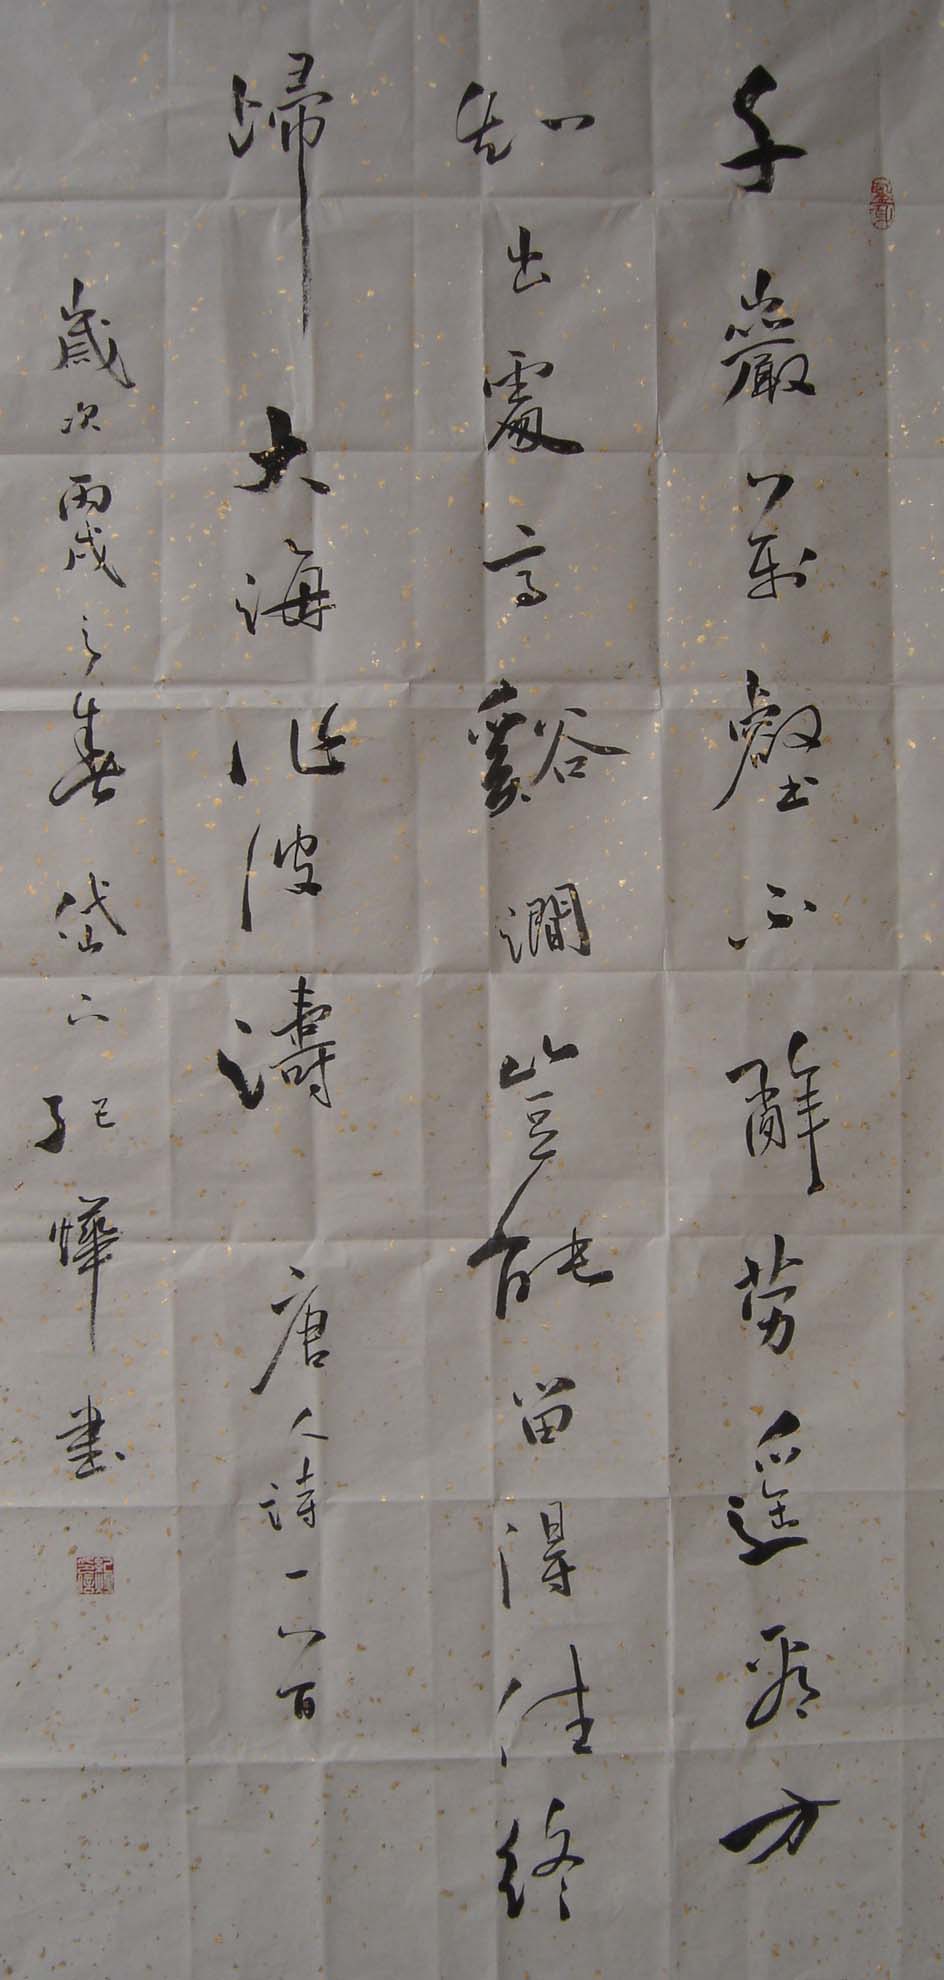 千巖萬壑不辭勞遥看方
知出處高谿澗豈能留得住終
歸大海作波濤 唐人詩一首
歲次丙戌之春岱下紀燁書